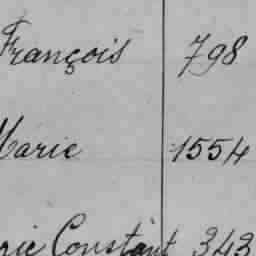 François 798
Marie 1554
Constant 343